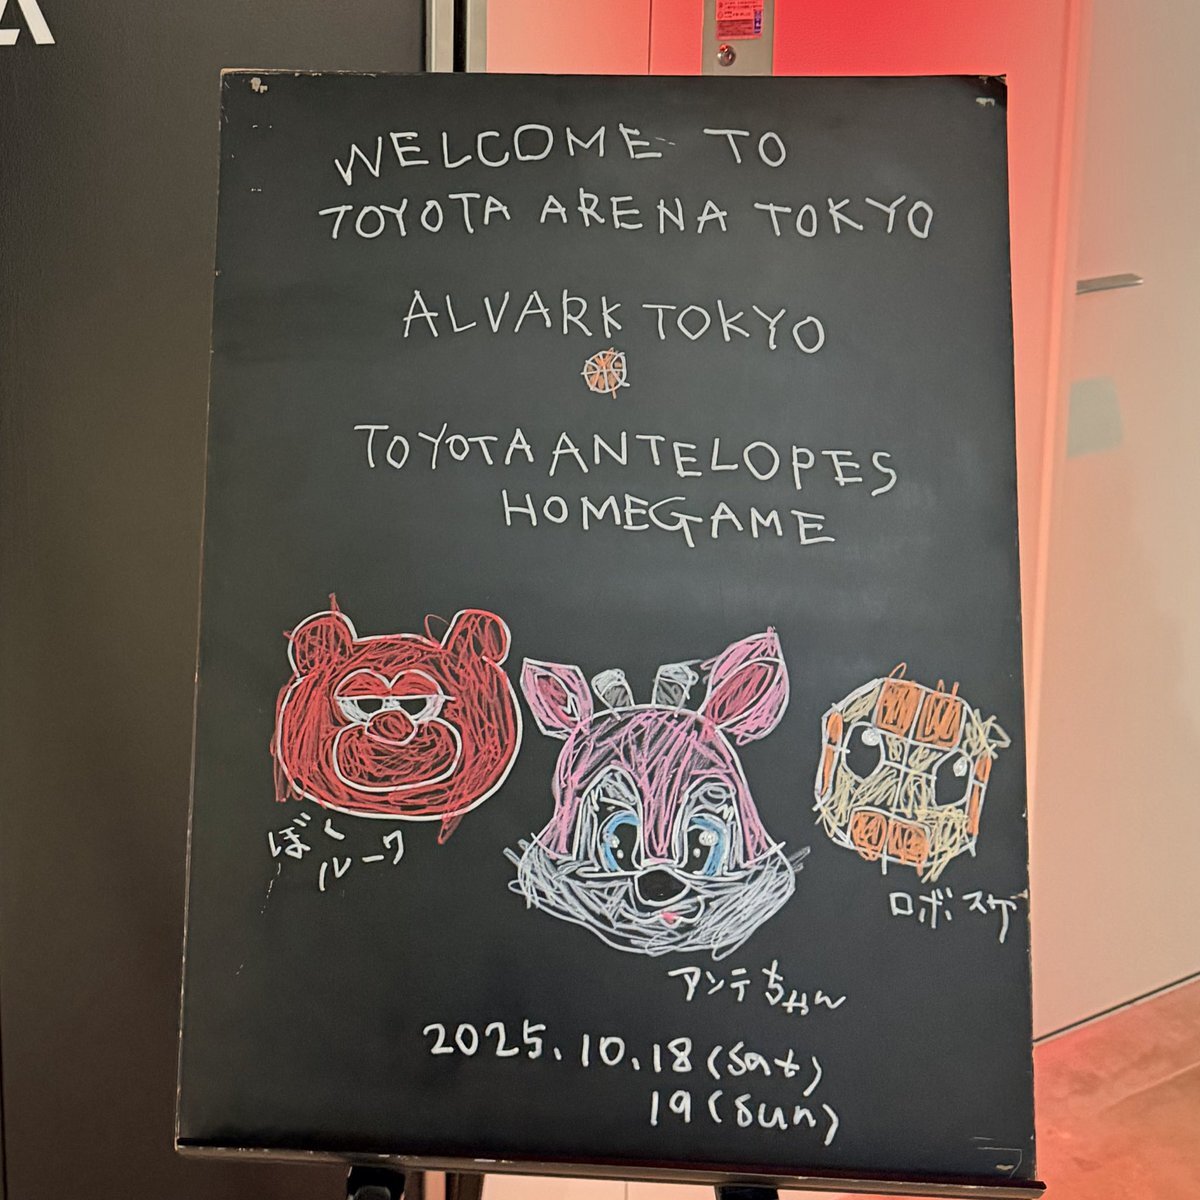 WELCOME TO
TOYOTA ARENA TOKYO
ALVARK TOKYO
TOYOTA ANTELOPES
HOMEGAME
ぼく
ルーク
アンテちゃん
ロボスケ
2025.10.18(Sat)
19(Sun)